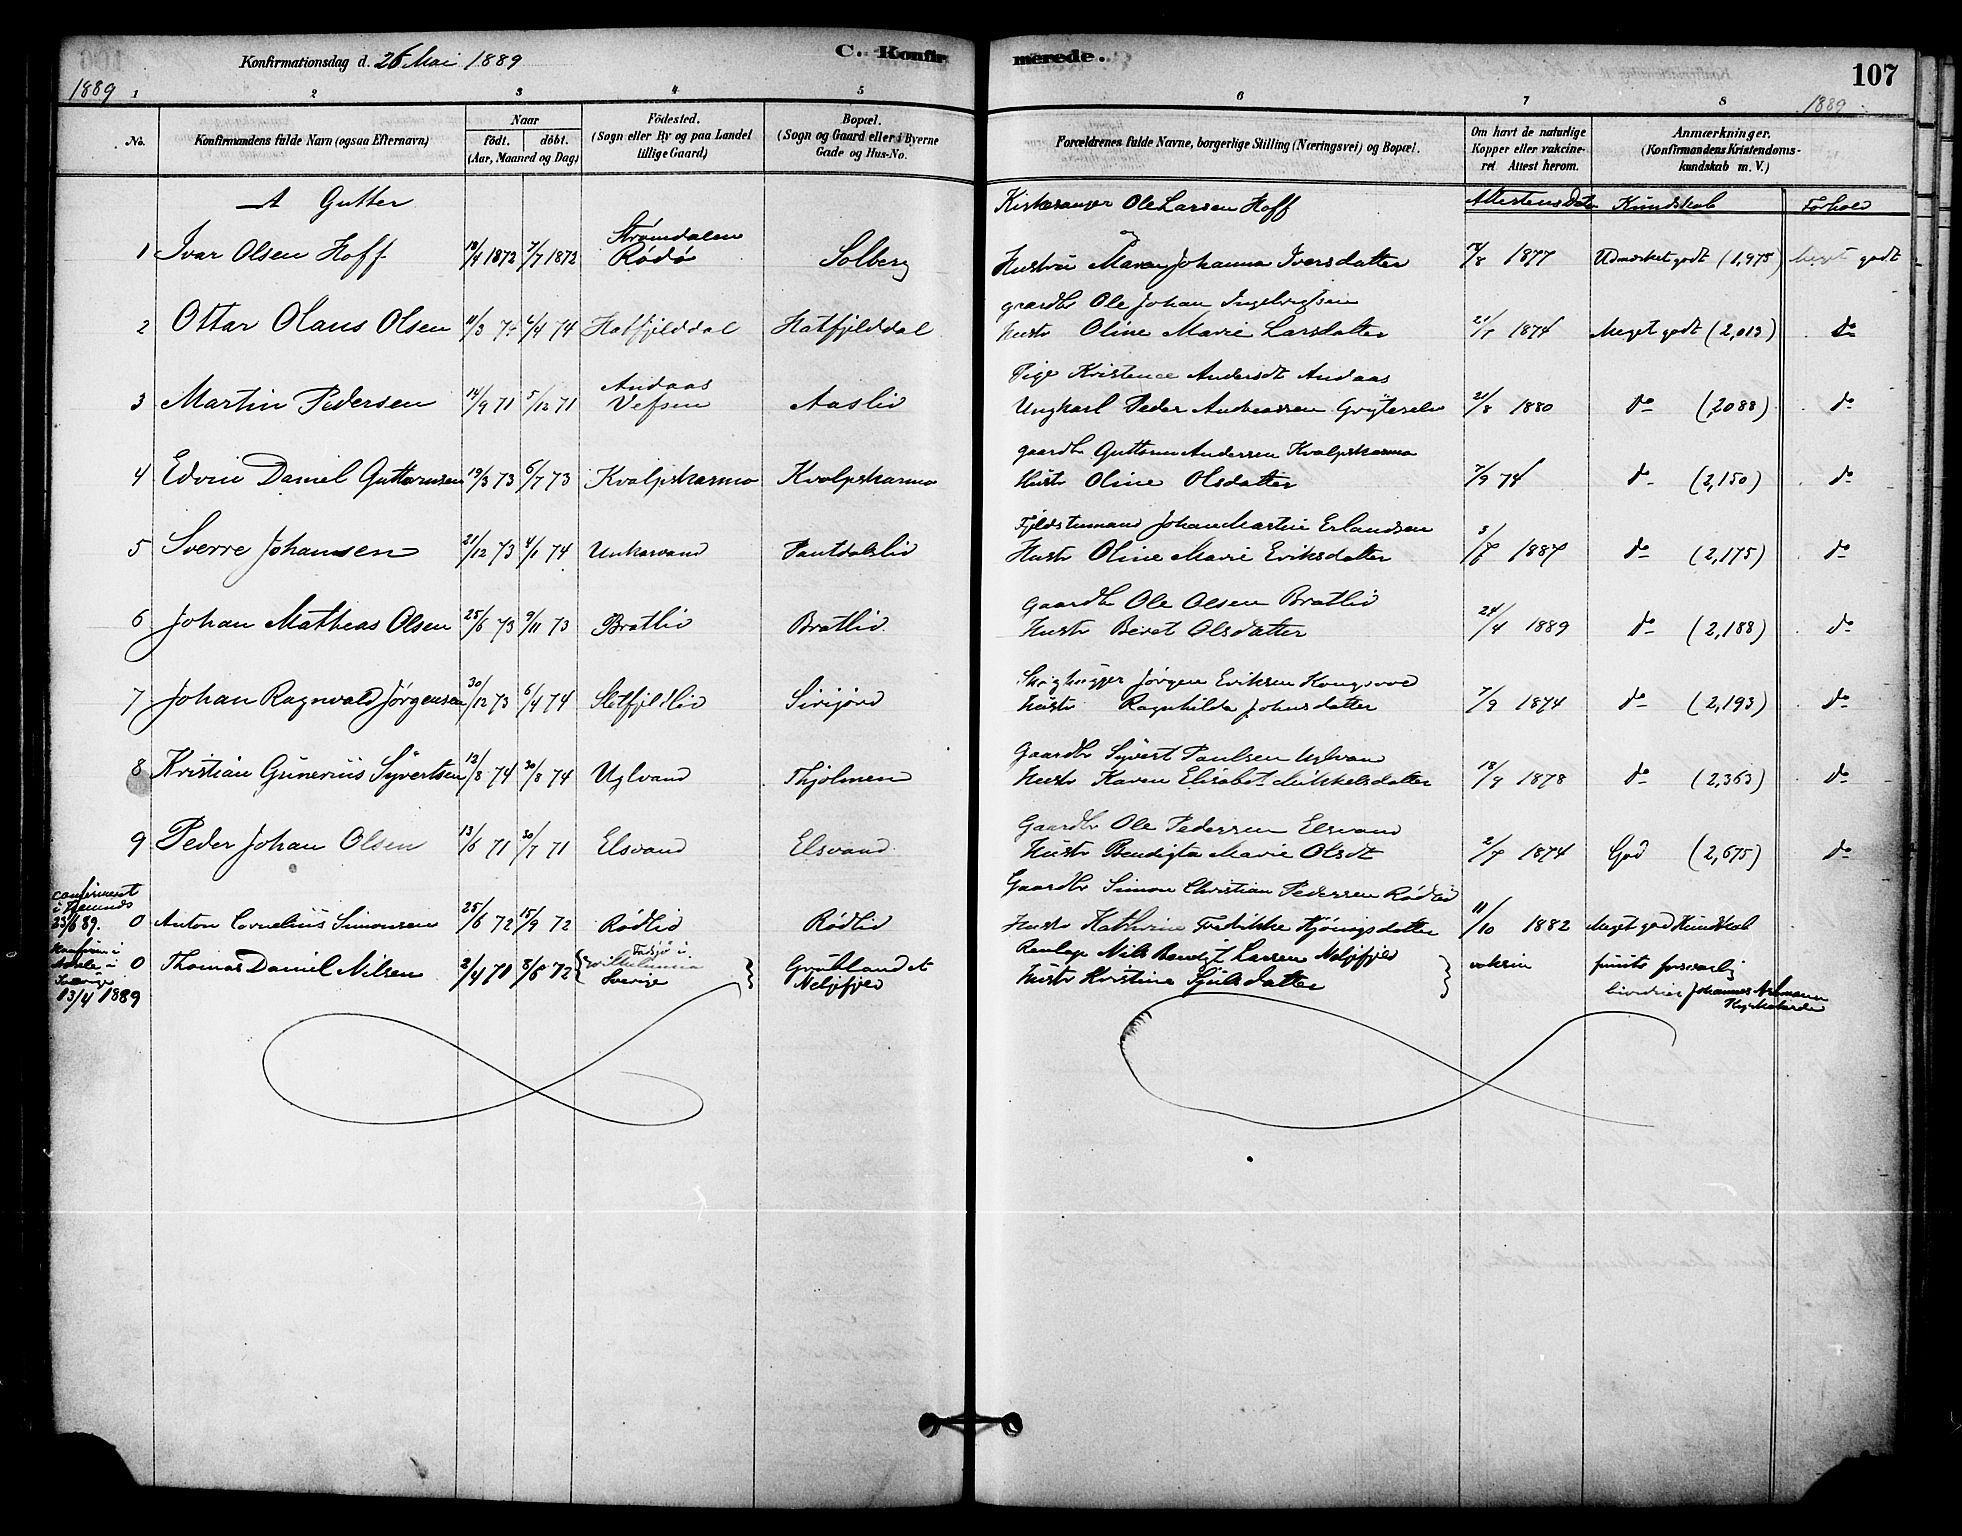 Konfirmationsdag d. 26 Mai 1889
C. Konfirmerede.
107
1889
1889
1 2 3 4 5 6 7 8
No.
Konfirmandens fulde Navn (ogsaa Efternavn)
Naar
födt. döbt.
(Aar, Maaned og Dag)
Födested.
(Sogn eller By og paa Landet
tillige Gaard)
Bopæl.
(Sogn og Gaard eller i Byerne
Gade og Hus-No.
Forældrenes fulde Navne, borgerlige Stilling (Næringsvei) og Bopæl.
Om havt de naturlige
Kopper eller vakcine-
ret Attest herom.
Anmærkninger.
(Konfirmandens Kristendoms-
kundskab m. V.)
A Gutter
Attestens Dato Kundskab Forhold
Kirkesanger Ole Larsen Hoff
Strømdalen
1 Ivar Olsen Hoff 18/4 1872 7/7 1872 Rødø Solberg Hustru Maren Johanna Iversdatter 14/8 1877 Udmærket godt (1,975) meget godt
gaardbr Ole Johan Ingebrigtsen
2 Ottar Olaus Olsen 11/3 74 6/4 74 Hatfjelddal Hatfjelddal Hustr Oline Marie Larsdatter 21/7 1874 Meget godt (2,013) do
Andaas
Pige Kristence Andersdt Andaas
3 Martin Pedersen 14/9 71 5/12 71 Vefsen Aaslid Ungkarl Peder Andreassen Grytselv 21/8 1880 do (2088) do
gaardb Guttorm Andersen Kvalpskarmo
4 Edvin Daniel Guttormsen 19/3 73 6/7 73 Kvalpskarmo Kvalpskarmo Hustr Oline Olsdatter 7/9 74 do (2,150) do
Fjeldstumand Johan Martin Erlandsen
5 Sverre Johansen 21/12 73 4/1 74 Unkarvand Pantdalslid Hustr Oline Marie Eriksdatter 3/8 1887 do (2,175) do
Gaardb Ole Olsen Bratlid
6 Johan Mathias Olsen 25/6 73 9/11 73 Bratlid Bratlid Hustr Beret Olsdatter 24/4 1889 do (2,188) do
Skoghugger Jørgen Eriksen Kongsvoe
7 Johan Ragnvald Jørgensen 30/12 73 6/4 74 Sletfjeldlid Sirijord Hustr Ragnhilda Johnsdatter 7/9 1874 do (2,193) do
Gaardbr Syvert Paulsen Uglvan
8 Kristian Gunerius Syvertsen 13/8 74 30/8 74 Uglvand Thjolmen Hustr Karen Elisabet Mikkelsdatter 18/9 1878 do (2,363) do
Gaardbr Ole Pedersen Elsvand
9 Peder Johan Olsen 13/6 71 30/7 71 Elsvand Elsvand Hustr Bendigta Marie Olsdt 2/7 1874 God (2,675) do
Gaardbr Simon Christian Pedersen Rødlid
confirmeret
i Hemnes
23/6 89. 0 Anton Cornelius Simonsen 25/6 72 15/9 72 Rødlid Rødlid Hustr Kathrine Fredrikke Hjøringsdatter 11/10 1882 Meget god Kundskab
Konfirm. i
i
Sverige
13/4 1889
0 Thomas Daniel Nilsen 2/4 71 8/6 72 i Wilhelmina Sverige Grubland et Neljefjeld
Nils Bendigt Larsen Neljefjeld
Hustr Kristina Sjulsdatter
vaksin
Johannes